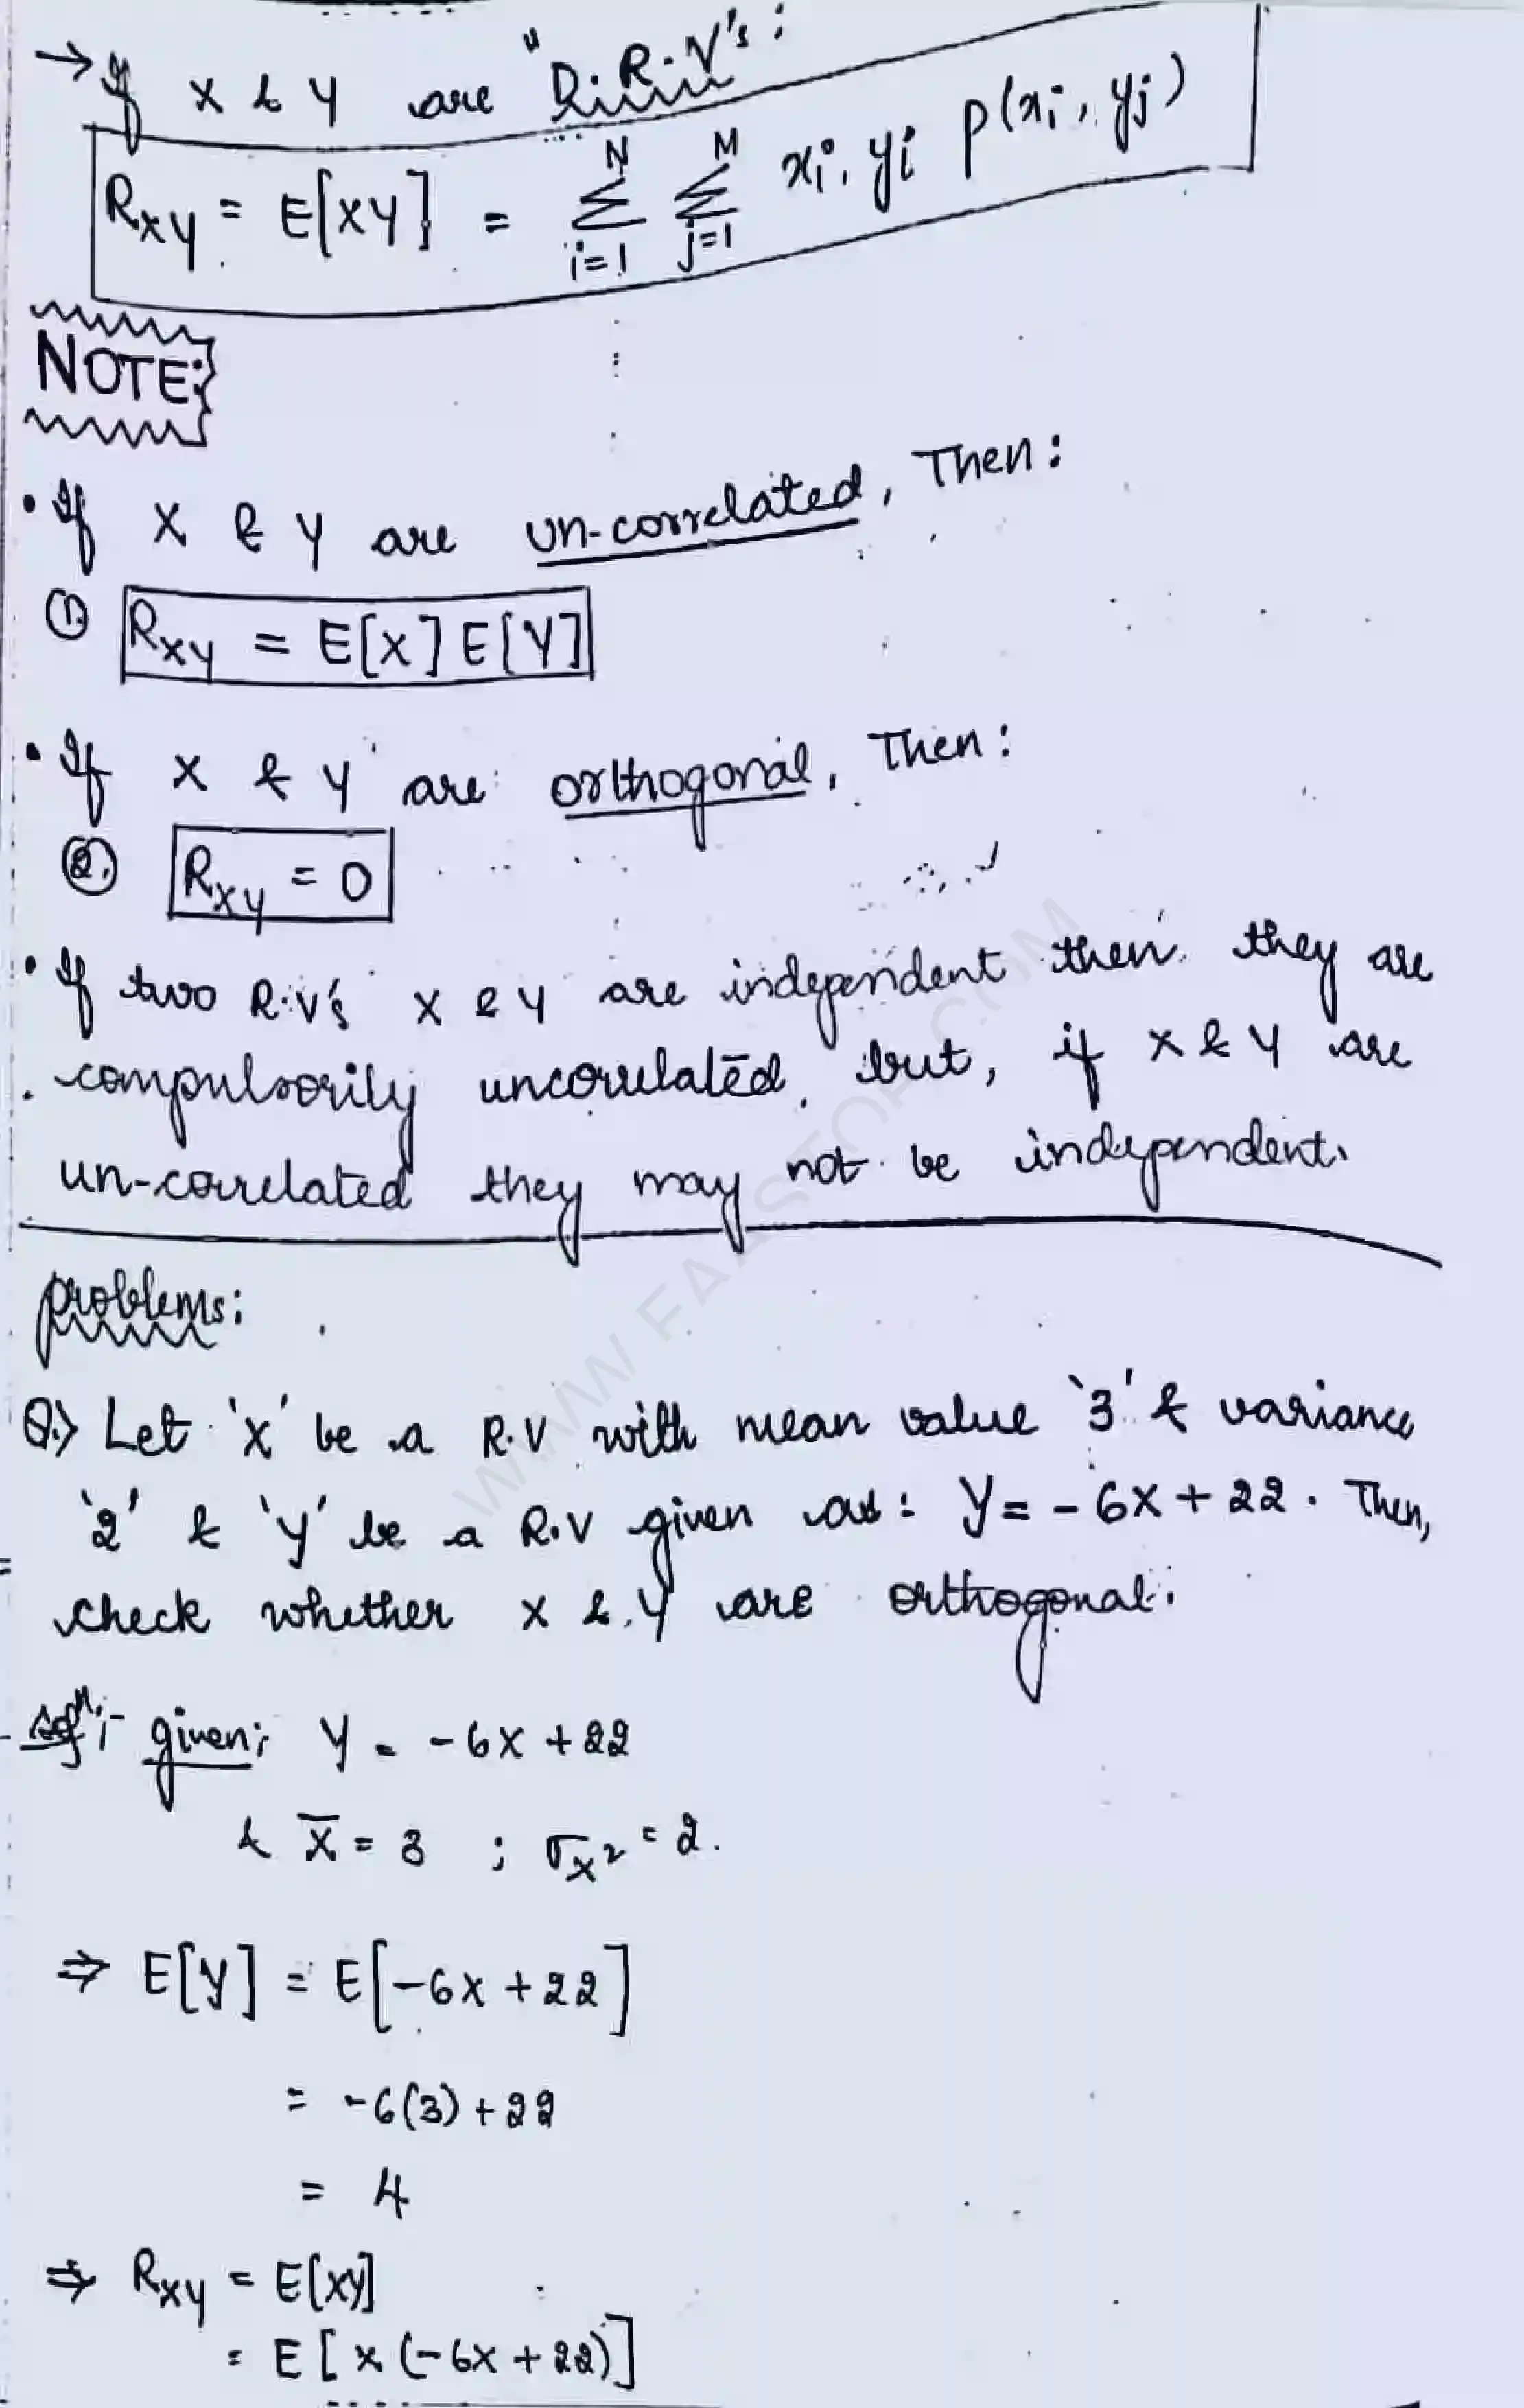 → If X & Y are "D.R.V's:
R_XY = E[XY] = Σ_{i=1}^{N} Σ_{j=1}^{M} xi, yi P(xi, yj)
NOTE:
• If X & Y are un-correlated, Then:
①. R_XY = E[X] E[Y]
• If X & Y are orthogonal, Then:
②. R_XY = 0
• If two R.V's X & Y are independent then they are
compulsorily uncorrelated, but, if X & Y are
un-correlated they may not be independent.
problems:
Q.> Let 'X' be a R.V with mean value '3' & variance
'2' & 'Y' be a R.V given as: Y = -6X + 22. Then,
check whether X & Y are orthogonal.
Solⁿ:- given: Y = -6X + 22
& X̄ = 3 ; σ_X² = 2.
⇒ E[Y] = E[-6X + 22]
= -6(3) + 22
= 4
⇒ R_XY = E[XY]
= E[X(-6X + 22)]